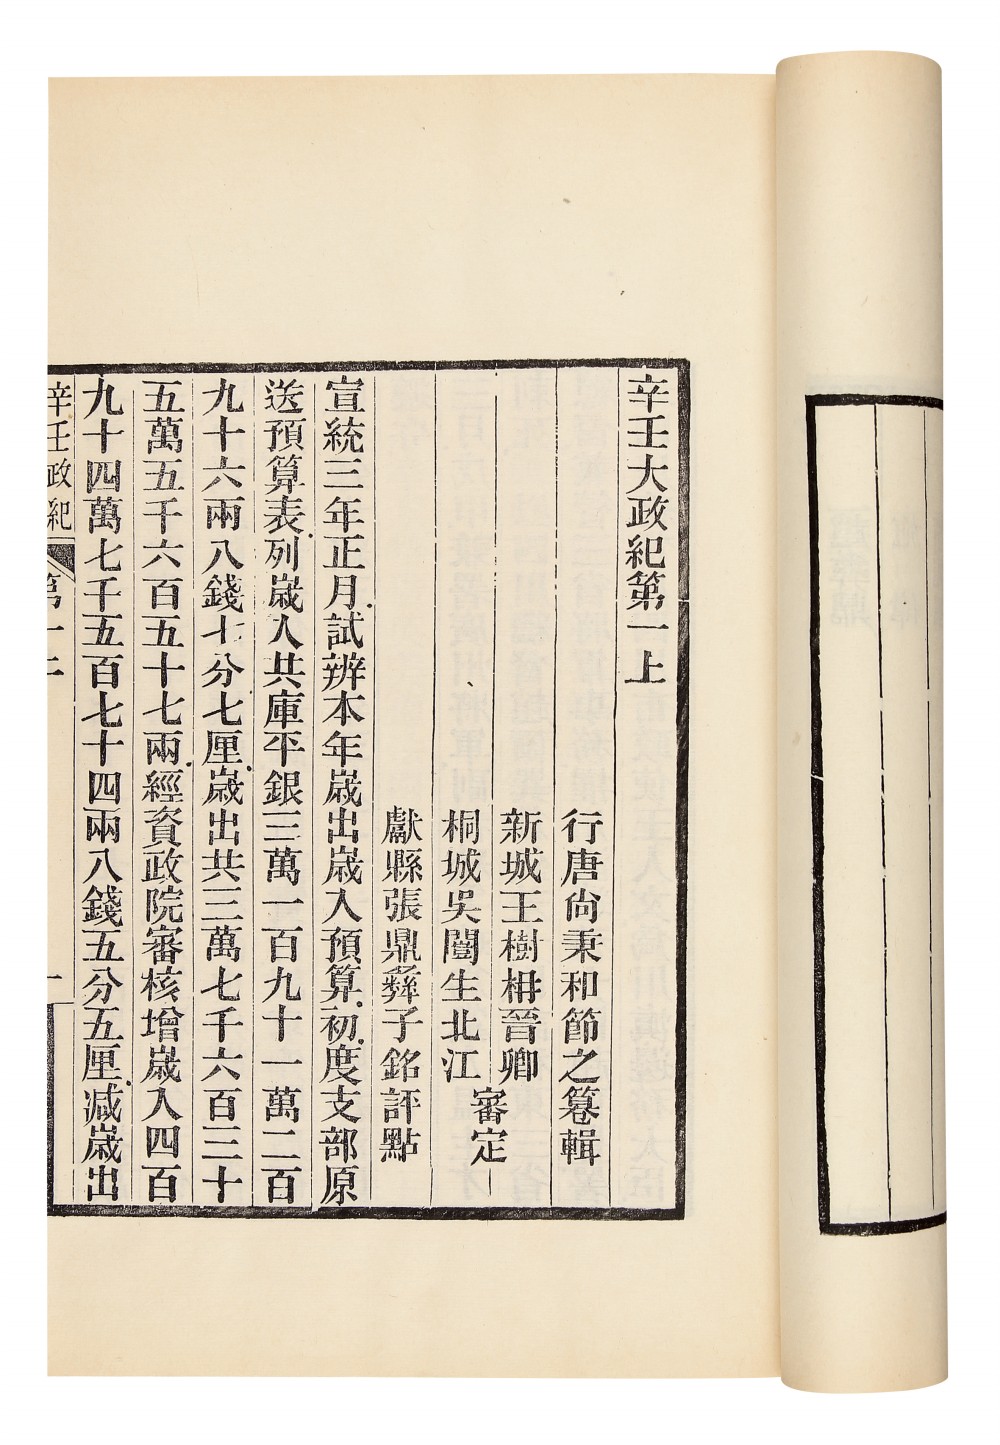 辛壬大政紀第一上
行唐尙秉和節之纂輯
新城王樹枏晉卿
桐城吳闓生北江
審定
獻縣張鼎彝子銘評點
宣統三年正月試辨本年歲出歲入預算初度支部原
送預算表列歲入共庫平銀三萬一百九十一萬二百
九十六兩八錢七分七厘歲出共三萬七千六百三十
五萬五千六百五十七兩經資政院審核增歲入四百
九十四萬七千五百七十四兩八錢五分五厘減歲出
辛壬政紀 第一上 一